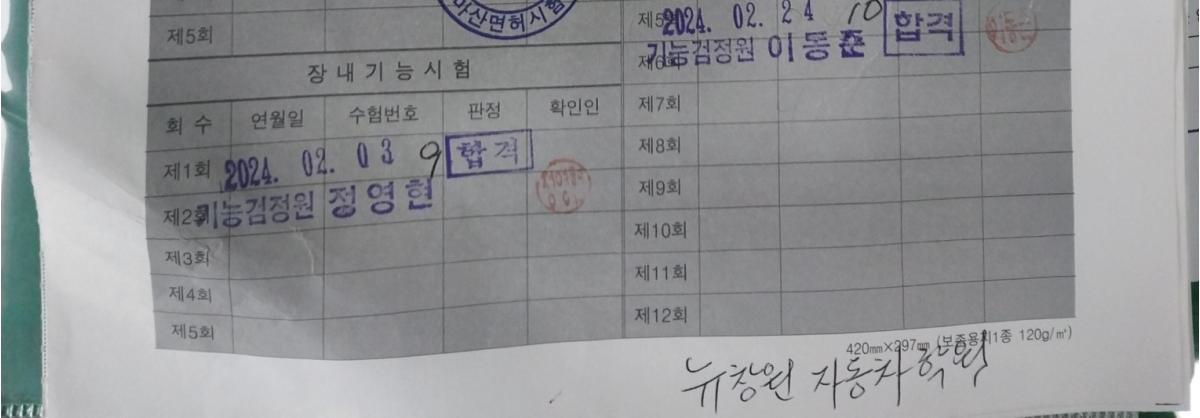 마산면허시험
제5회
장내기능시험
회 수 연월일 수험번호 판정 확인인
제1회 2024. 02. 03 9 합격
제2회 기능검정원 정영현
제3회
제4회
제5회
제5회 2024. 02. 24 10 합격
제6회 기능검정원 이동준
제7회
제8회
제9회
제10회
제11회
제12회
420㎜×297㎜ (보존용지1종 120g/㎡)
뉴창원 자동차학원